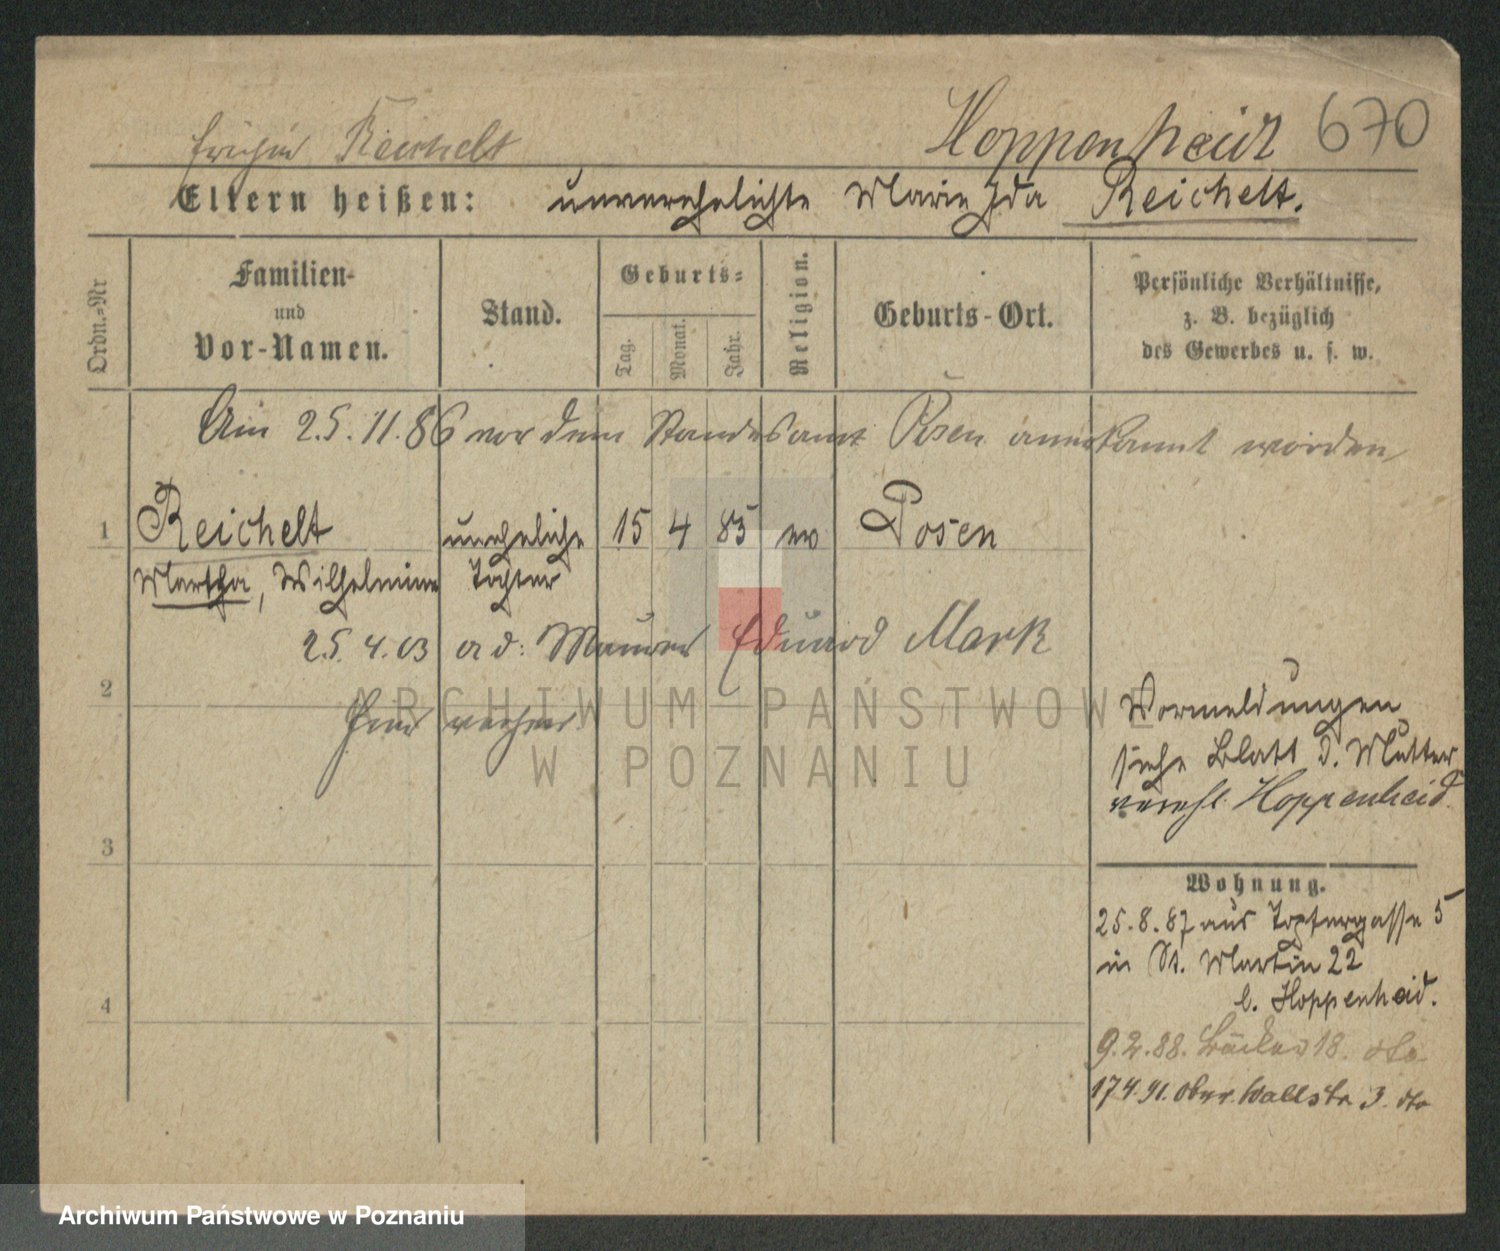 Hoppenheid 670
früher Reichelt
Eltern heißen: unverehelichte Marie Ida Reichelt.
Ordn.-Nr
Familien- und Vor-Namen.
Stand.
Geburts-
Tag.
Monat.
Jahr.
Religion.
Geburts-Ort.
Persönliche Verhältnisse,
z. B. bezüglich
des Gewerbes u. s. w.
Am 25.11.86 vor dem Standesamt Posen anerkannt worden
1 Reichelt uneheliche 15 4 85 ev Posen
Martha, Wilhelmine Tochter
25.4.03 a d: Maurer Eduard Mark
2
hier verh.
Vormeldungen
siehe Blatt d. Mutter
verehl. Hoppenheid.
3
Wohnung.
25.8.87 aus Töpfergasse 5
in St. Martin 22
b. Hoppenheid.
4
9.2.88. Bäcker 18. dto
17.4.91. Ober. Wallstr 3. dto
ARCHIWUM PAŃSTWOWE
W POZNANIU
Archiwum Państwowe w Poznaniu